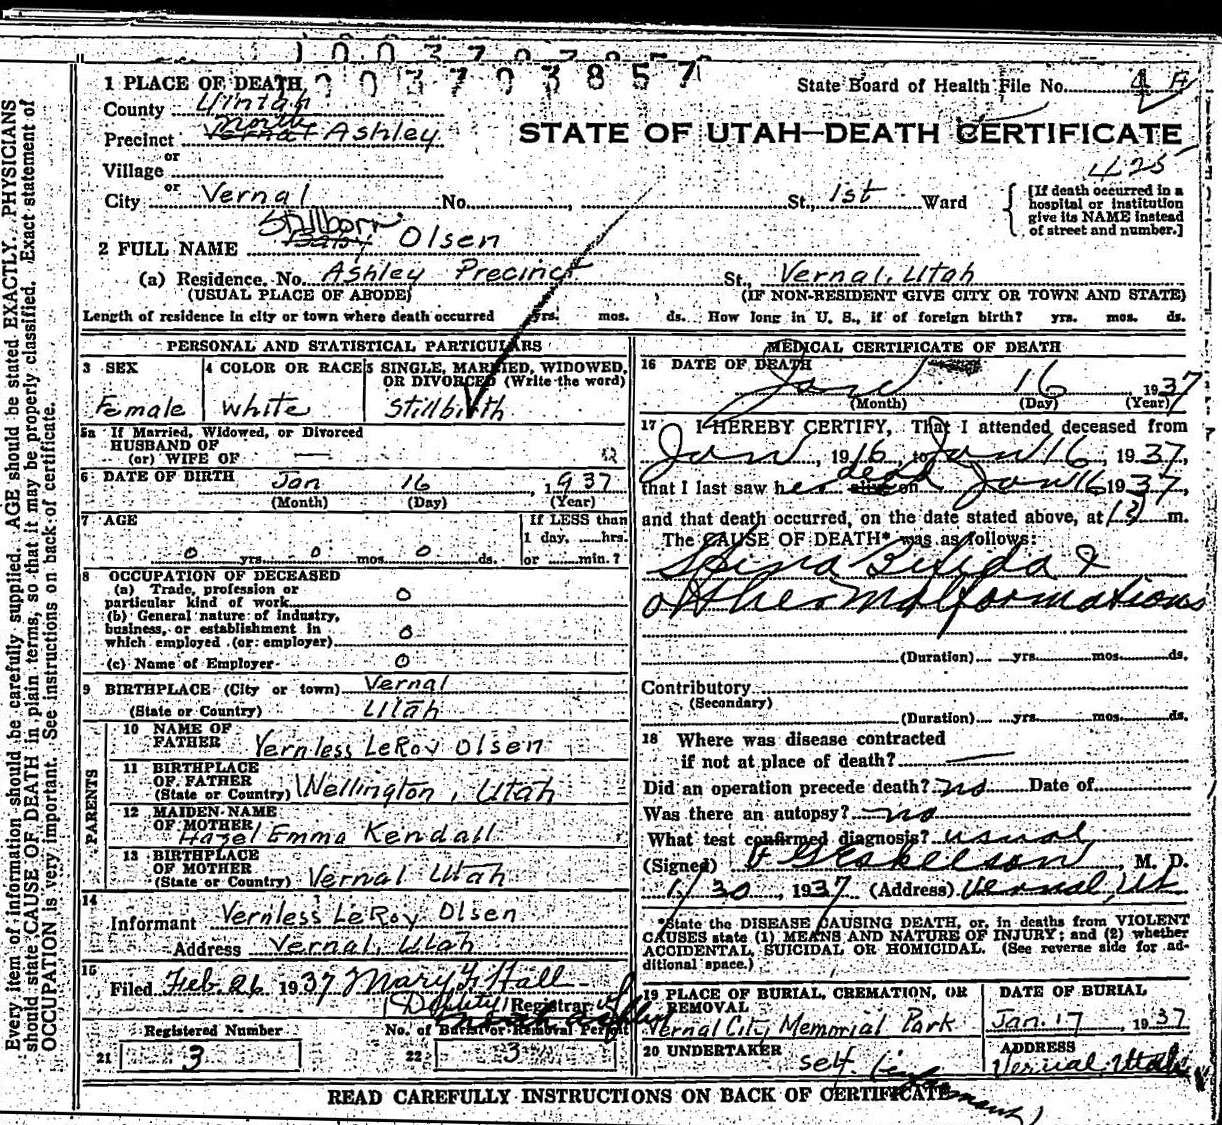 003703857
1 PLACE OF DEATH
State Board of Health File No. 4 A
County Uintah
North
Precinct Vernal Ashley
STATE OF UTAH—DEATH CERTIFICATE
or
Village
425
or
City Vernal No. , St., 1st Ward
[If death occurred in a hospital or institution give its NAME instead of street and number.]
Stillborn
2 FULL NAME Baby Olsen
(a) Residence. No. Ashley Precinct St., Vernal, Utah
(USUAL PLACE OF ABODE) (IF NON-RESIDENT GIVE CITY OR TOWN AND STATE)
Length of residence in city or town where death occurred yrs. mos. ds. How long in U. S., if of foreign birth? yrs. mos. ds.
PERSONAL AND STATISTICAL PARTICULARS
3 SEX
Female
4 COLOR OR RACE
White
5 SINGLE, MARRIED, WIDOWED,
OR DIVORCED (Write the word)
Stillbirth
5a If Married, Widowed, or Divorced
HUSBAND OF
(or) WIFE OF —
6 DATE OF BIRTH Jan 16, 1937
(Month) (Day) (Year)
7 AGE
0 yrs. 0 mos. 0 ds.
If LESS than
1 day, ......hrs.
or ......min.?
8 OCCUPATION OF DECEASED
(a) Trade, profession or
particular kind of work 0
(b) General nature of industry,
business, or establishment in
which employed (or employer) 0
(c) Name of Employer 0
9 BIRTHPLACE (City or town) Vernal
(State or Country) Utah
PARENTS
10 NAME OF
FATHER Vernless LeRoy Olsen
11 BIRTHPLACE
OF FATHER
(State or Country) Wellington, Utah
12 MAIDEN NAME
OF MOTHER Hazel Emma Kendall
13 BIRTHPLACE
OF MOTHER
(State or Country) Vernal Utah
14
Informant Vernless LeRoy Olsen
Address Vernal, Utah
15
Filed Feb. 26 1937 Mary H Hall
(Deputy) Registrar
Registered Number
21 3
No. of Burial or Removal Permit
22 3
MEDICAL CERTIFICATE OF DEATH
16 DATE OF DEATH
Jan 16 1937
(Month) (Day) (Year)
17 I HEREBY CERTIFY, That I attended deceased from
Jan, 1916, to Jan 16, 1937,
that I last saw her alive on dead Jan 16 1937,
and that death occurred, on the date stated above, at m.
The CAUSE OF DEATH* was as follows:
Spina Bifida &
other malformations
(Duration) yrs. mos. ds.
Contributory
(Secondary)
(Duration) yrs. mos. ds.
18 Where was disease contracted
if not at place of death? —
Did an operation precede death? no Date of
Was there an autopsy? no
What test confirmed diagnosis? usual
(Signed) Eskelson, M. D.
1/30, 1937 (Address) Vernal, Ut
*State the DISEASE CAUSING DEATH, or, in deaths from VIOLENT
CAUSES state (1) MEANS AND NATURE OF INJURY; and (2) whether
ACCIDENTAL, SUICIDAL OR HOMICIDAL. (See reverse side for ad-
ditional space.)
19 PLACE OF BURIAL, CREMATION, OR
REMOVAL
Vernal City Memorial Park
DATE OF BURIAL
Jan. 17, 1937
20 UNDERTAKER
self
ADDRESS
Vernal, Utah
READ CAREFULLY INSTRUCTIONS ON BACK OF CERTIFICATE
Every item of information should be carefully supplied. AGE should be stated EXACTLY. PHYSICIANS
should state CAUSE OF DEATH in plain terms, so that it may be properly classified. Exact statement of
OCCUPATION is very important. See instructions on back of certificate.